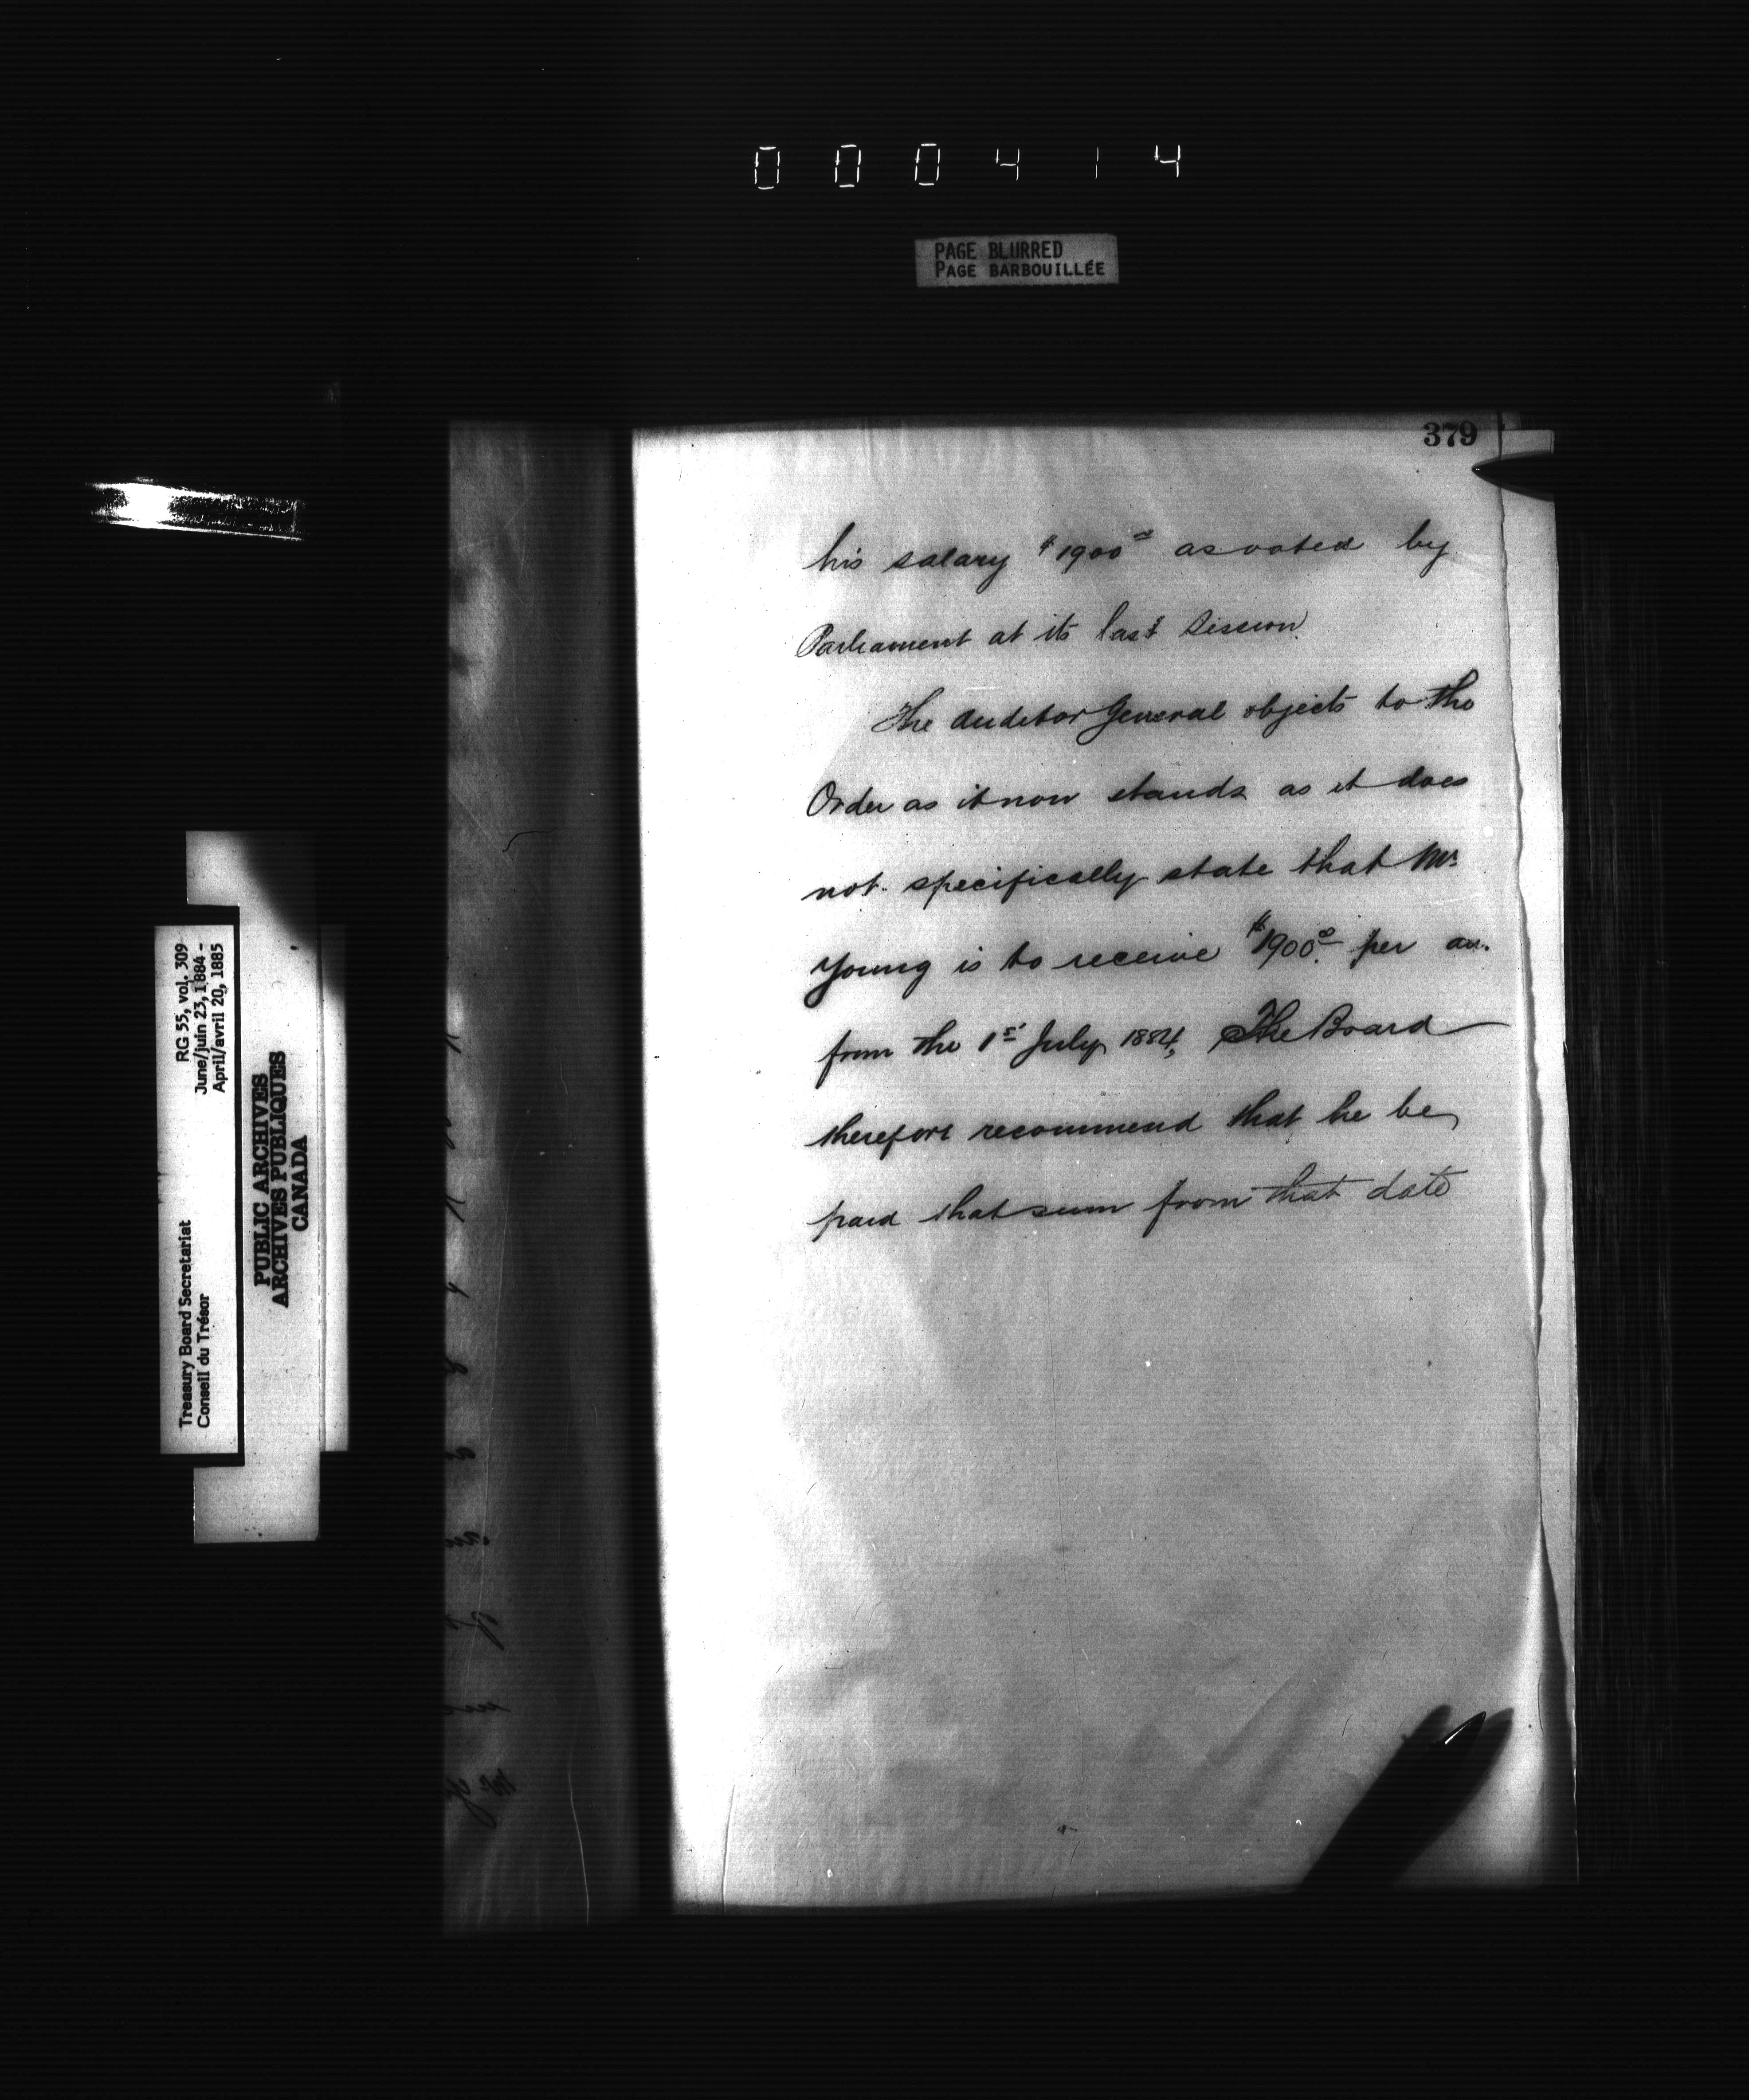 000414
PAGE BLURRED
PAGE BARBOUILLÉE
379
his salary $1900.00 as voted by
Parliament at its last Session
The Auditor General objects to the
Order as it now stands as it does
not specifically state that Mr.
Young is to receive $1900.00 per an.
from the 1st July 1884, The Board
therefore recommend that he be
paid that sum from that date
RG 55, vol. 309
June/juin 23, 1884 -
April/avril 20, 1885
Treasury Board Secretariat
Conseil du Trésor
PUBLIC ARCHIVES
ARCHIVES PUBLIQUES
CANADA